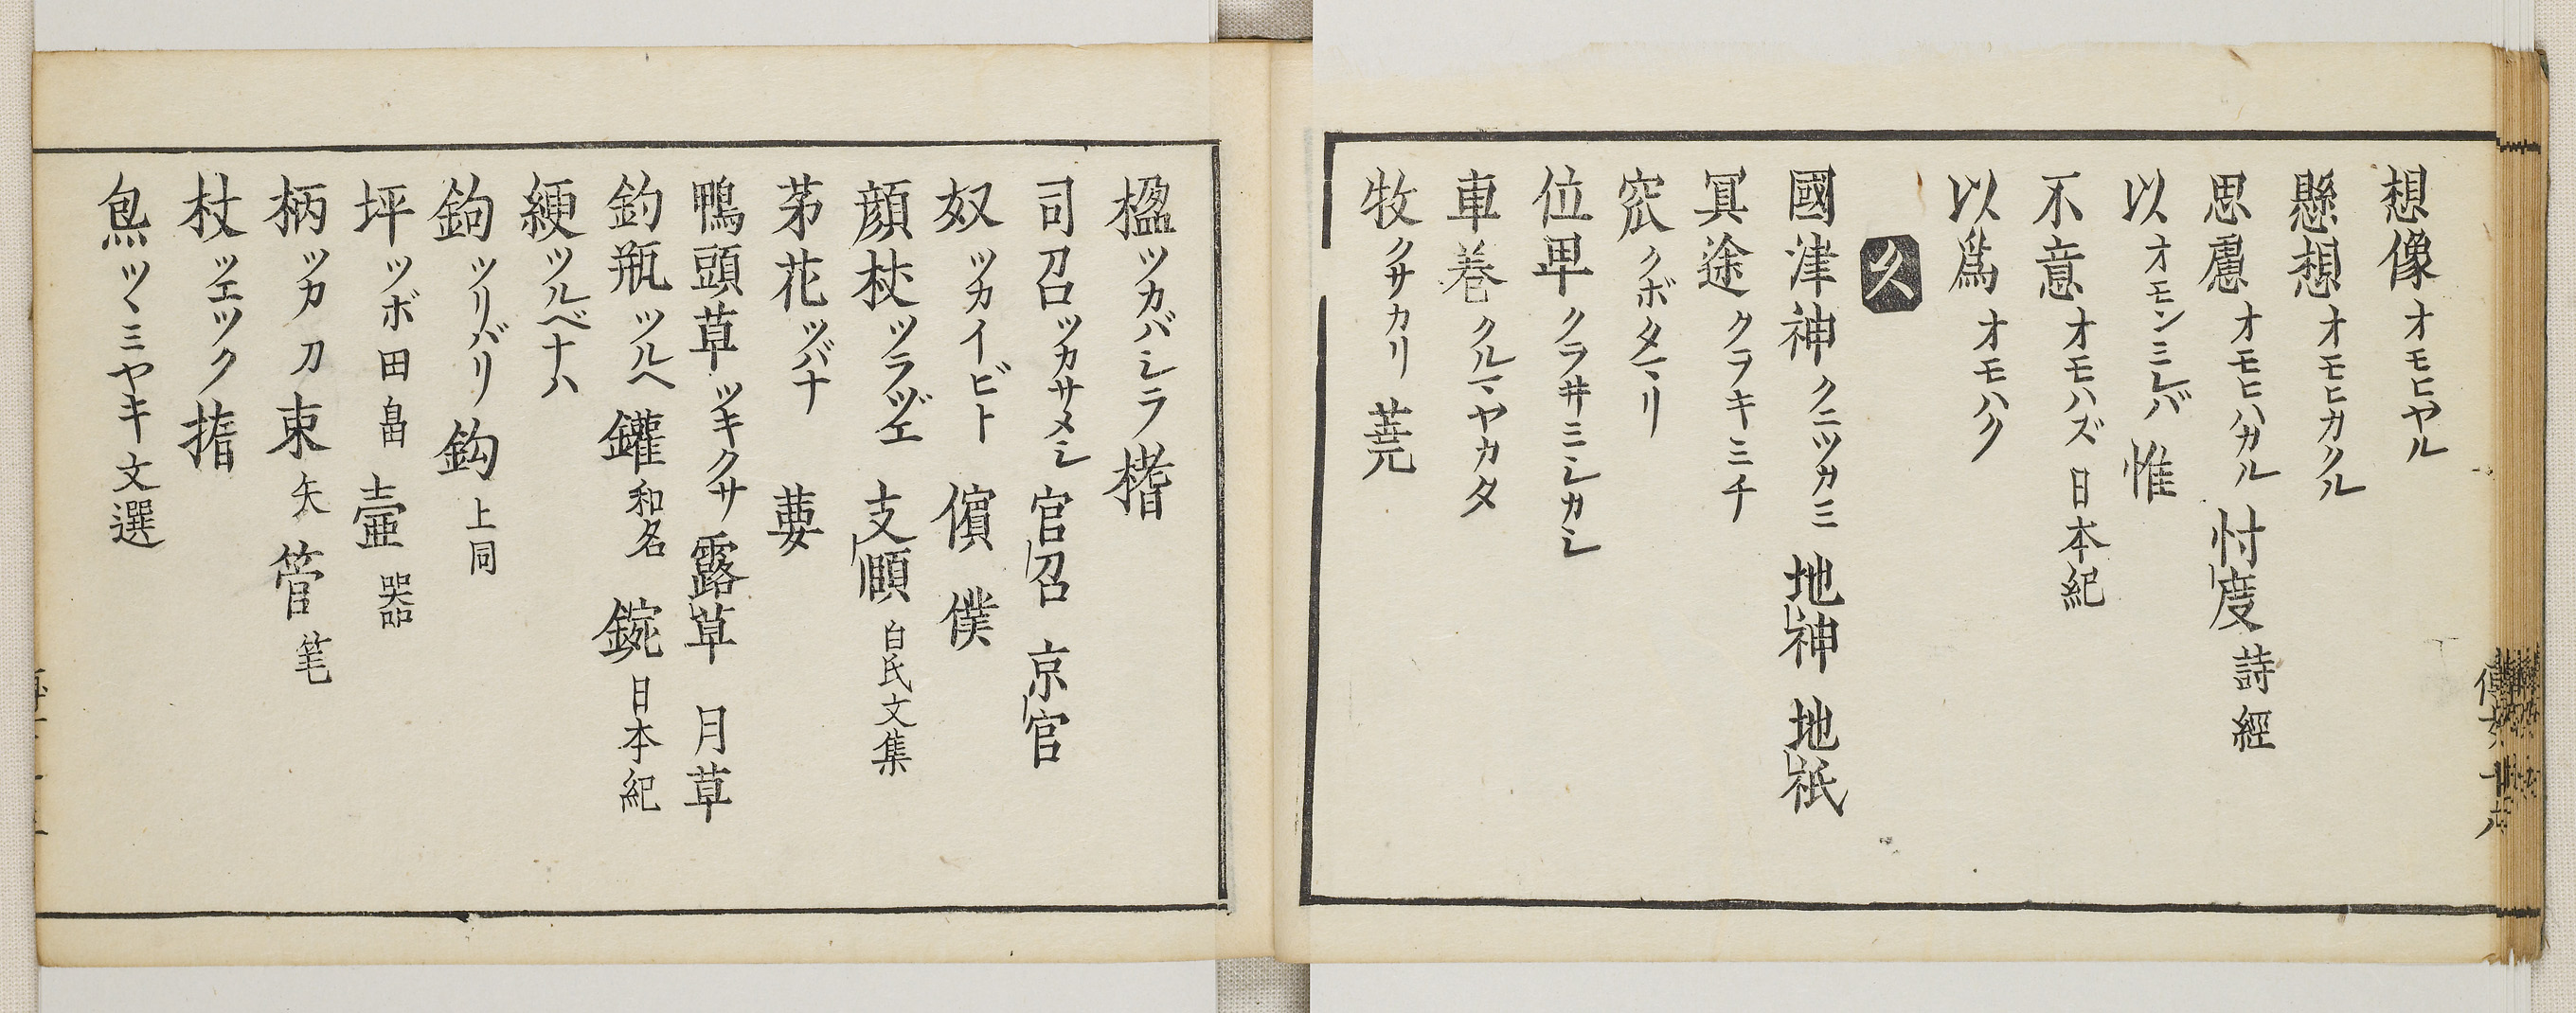 想像オモヒヤル
懸想オモヒカクル
思慮オモヒハカル 忖度 詩經
以オモンミレバ 惟
不意オモハズ 日本紀
以爲オモハク
久
國津神クニツカミ 地神 地祇
冥途クラキミチ
窊クボタマリ
位卑クラヰミシカシ
車巻クルマヤカタ
牧クサカリ 蕘
楹ツカバシラ 榰
司召ツカサメシ 官召 京官
奴ツカイビト 儐 僕
顔杖ツラヅエ 支頤 白氏文集
茅花ツバナ 葽
鴨頭草ツキクサ 露草 月草
釣瓶ツルヘ 鑵 和名 鋺 日本紀
綆ツルベナハ
鉤ツリバリ 鈎 上同
坪ツボ 田畠 壷 器
柄ツカ 刀 束 矢 管 笔
杖ツエツク 搘
炰ツヽミヤキ 文選